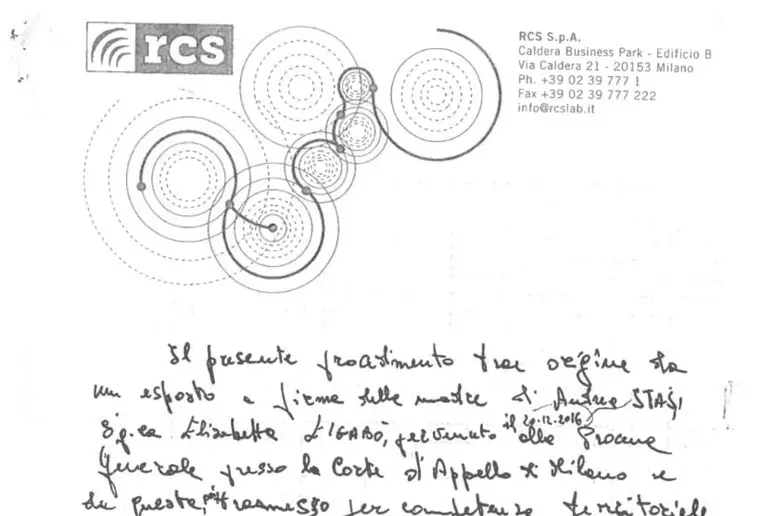 rcs
RCS S.p.A.
Caldera Business Park - Edificio B
Via Caldera 21 - 20153 Milano
Ph. +39 02 39 777 1
Fax +39 02 39 777 222
info@rcslab.it
Il presente procedimento trae origine da
un esposto a firma della madre di Andrea STASI
Sig.ra Elisabetta LIGABÒ, pervenuto il 20.12.2016 alla Procura
Generale presso la Corte d'Appello di Milano e
da questa, trasmesso per competenza territoriale